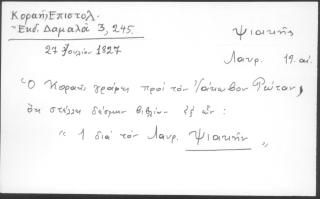 Κοραῆ, Ἐπιστολ.
Ἐκδ. Δαμαλᾶ 3, 245.
Ψιακῆς
27 Ἰουλίου 1827
Λαυρ. 19. αἰ.
Ὁ Κοραῆς γράφει πρὸς τὸν Ἰάκωβον Ρώταν,
ὅτι στέλλει δέσμην βιβλίων ἐξ ὧν :
" 1 διὰ τὸν Λαυρ. Ψιακῆν "